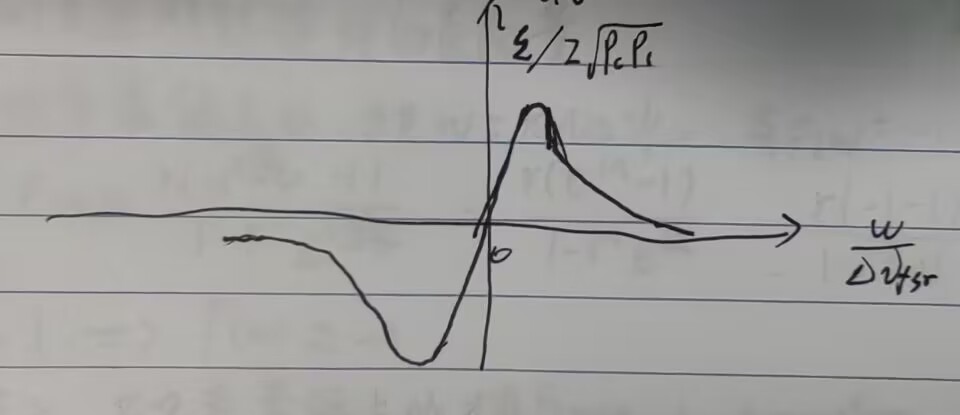 ε/2√PcPs
0
w/Δνfsr